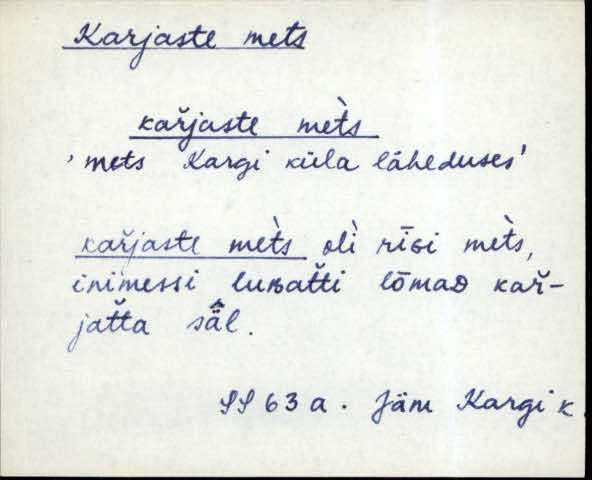 Karjaste mets
kař̀jaste mèts
'mets Kargi küla läheduses'
kař̀jaste mèts olì rīɢi mèts,
inimessi luʙatti lōmaᴅ kař̀-
jatta sä̂l.
SS 63 a. Jäm Kargi k